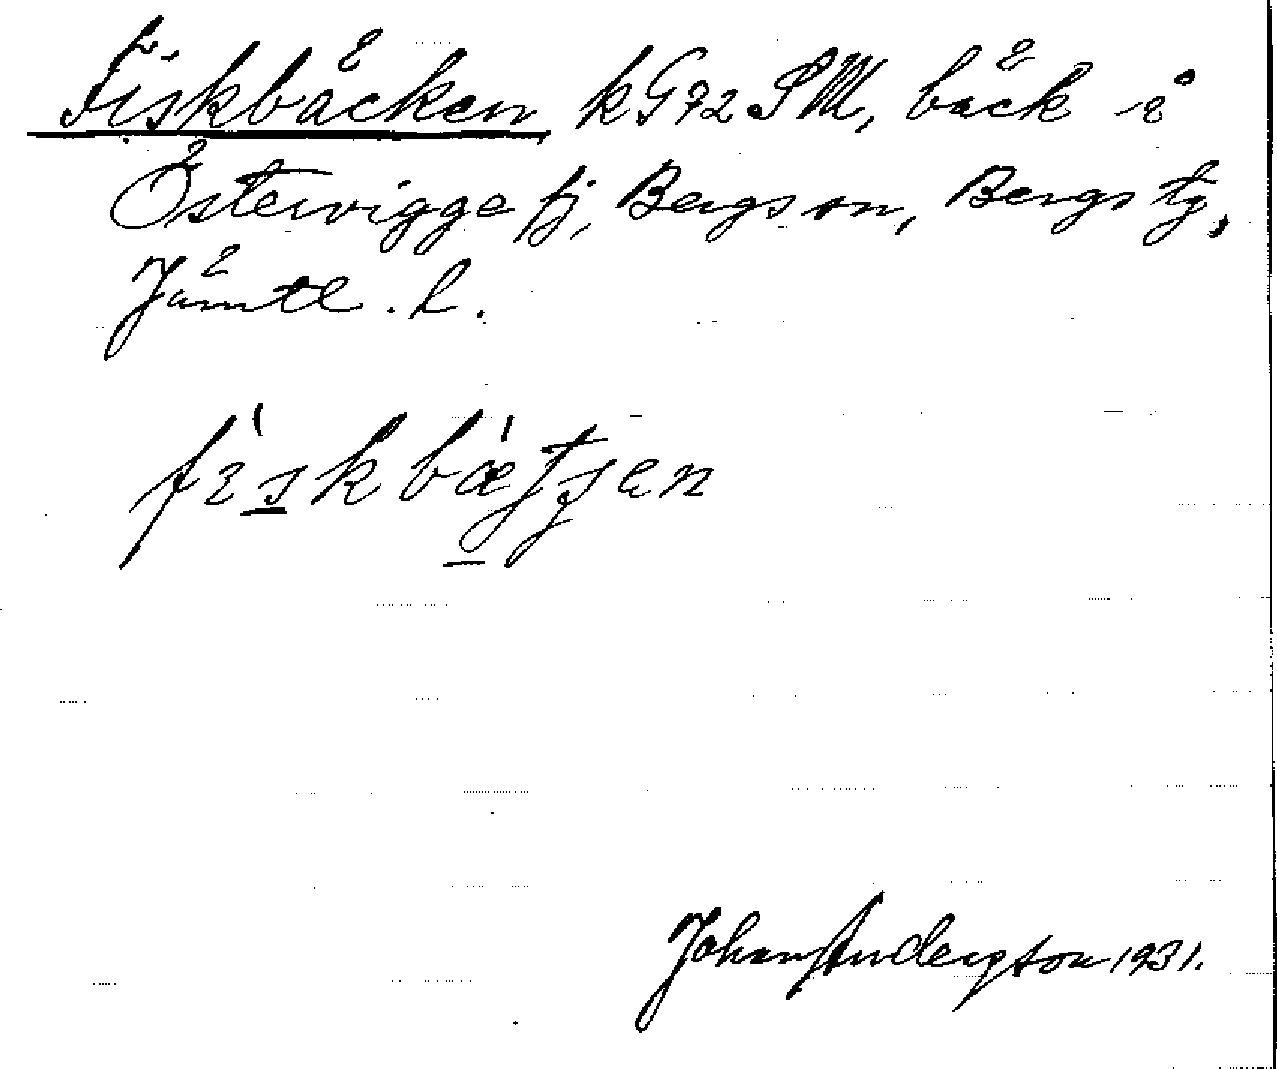 Fiskbäcken kG72SM, bäck i
Östervigge fj, Bergs sn, Bergs tg,
Jämtl. l.
fiskbætʃen
Johan Andersson 1931.